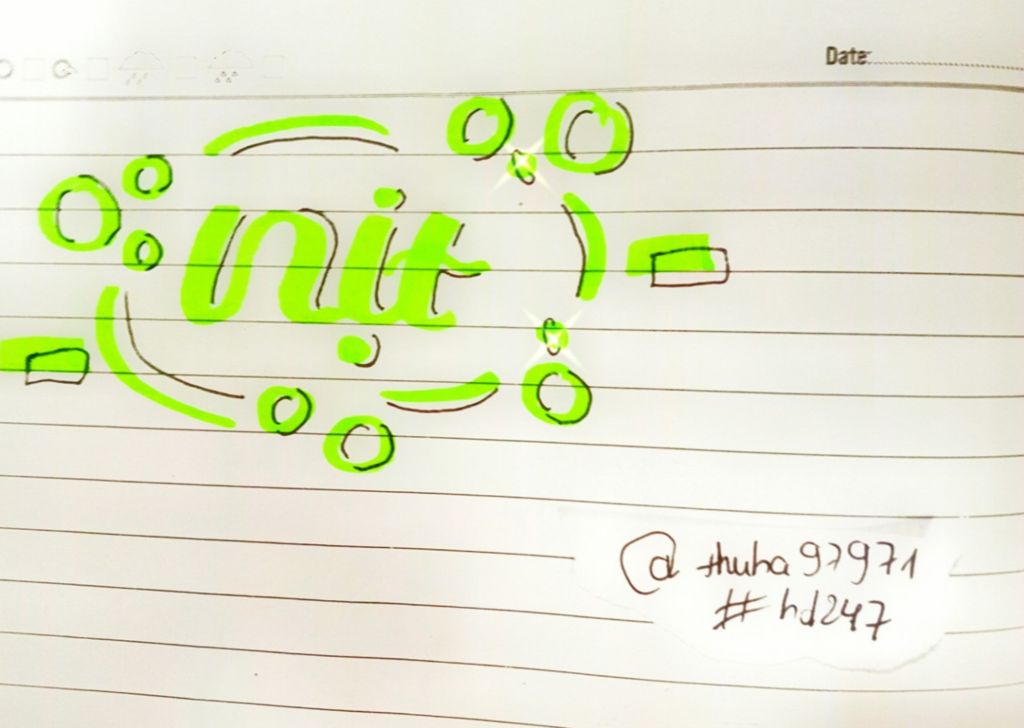 Date:
nịt
@thuha97971
#hd247